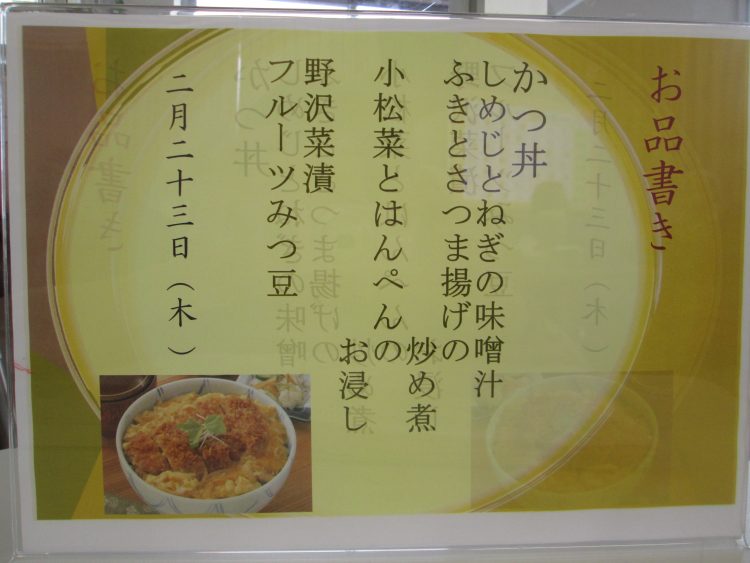 お品書き
かつ丼
しめじとねぎの味噌汁
ふきとさつま揚げの
炒め煮
小松菜とはんぺんの
お浸し
野沢菜漬
フルーツみつ豆
二月二十三日（木）